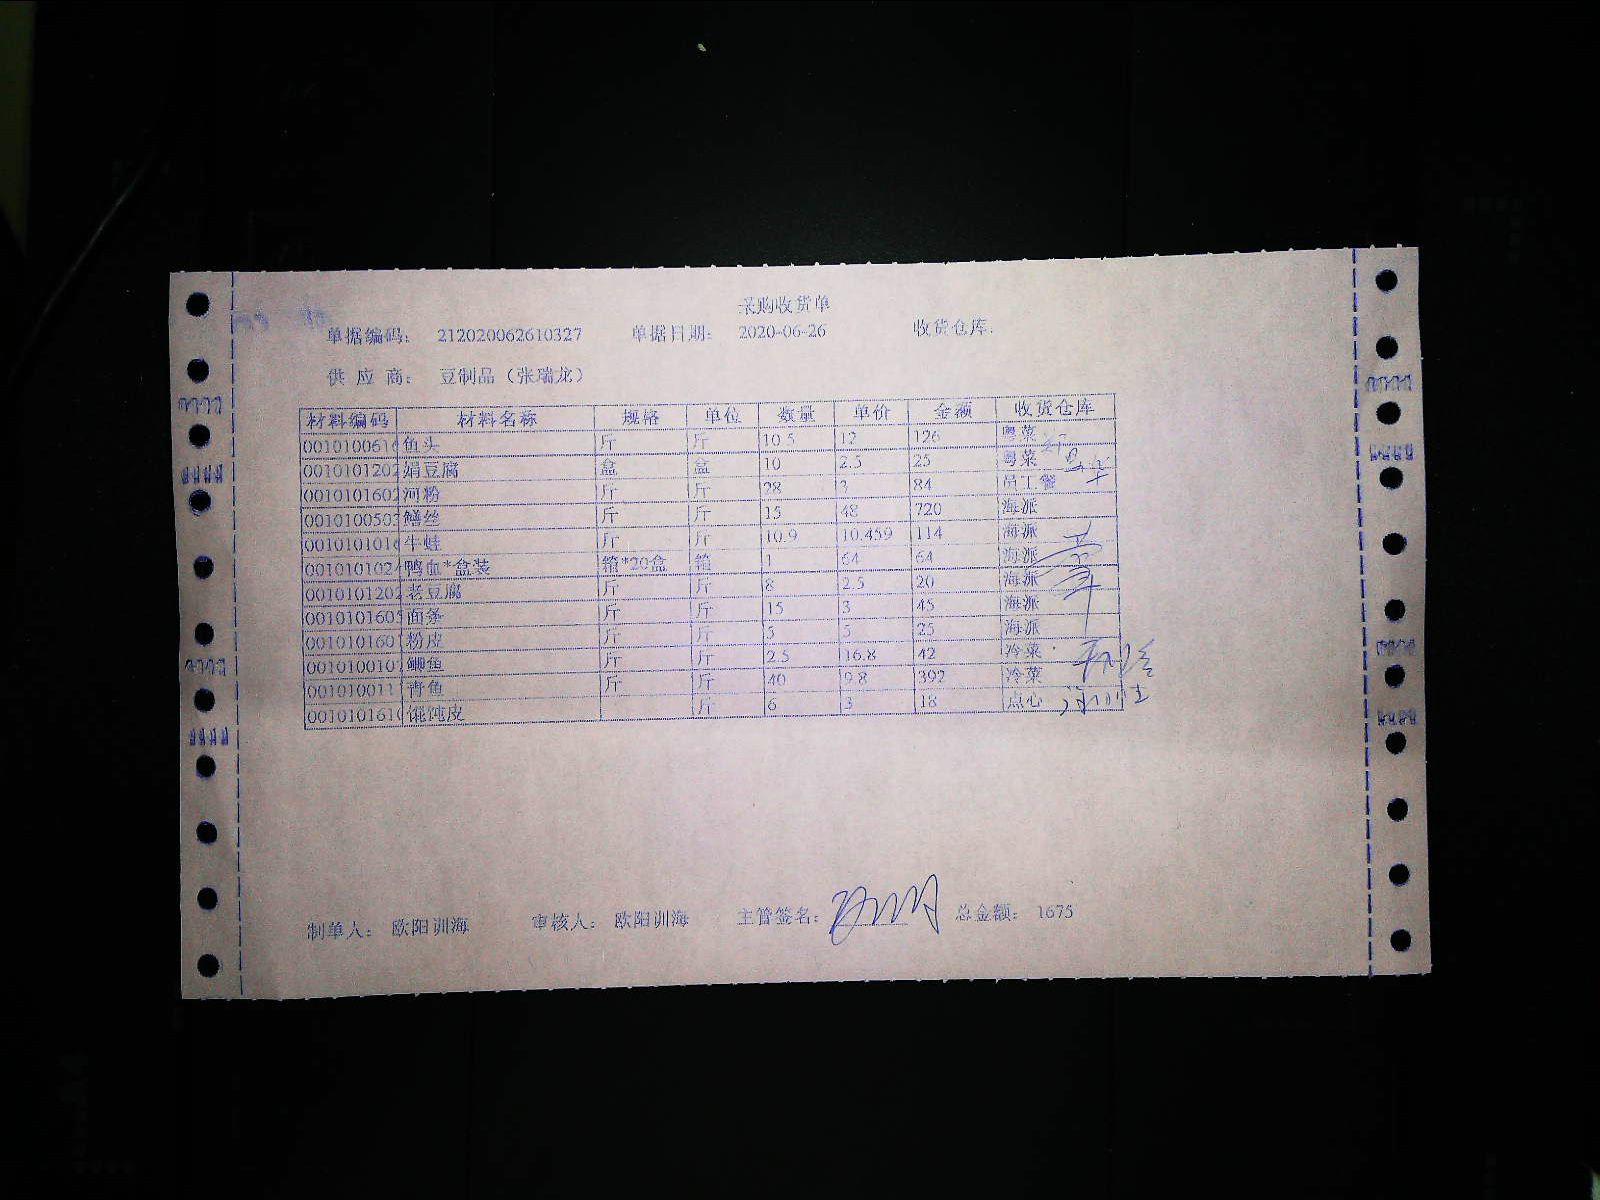 采购收货单
单据编码： 212020062610327 单据日期： 2020-06-26 收货仓库：
供 应 商： 豆制品（张瑞龙）
材料编码 材料名称 规格 单位 数量 单价 金额 收货仓库
001010061 鱼头 斤 斤 10.5 12 126 粤菜
0010101202 绢豆腐 盒 盒 10 2.5 25 粤菜
0010101602 河粉 斤 斤 28 3 84 员工餐
001010050 鳝丝 斤 斤 15 48 720 海派
001010101 牛蛙 斤 斤 10.9 10.459 114 海派
001010102 鸭血*盒装 箱*20盒 箱 1 64 64 海派
0010101202 老豆腐 斤 斤 8 2.5 20 海派
001010160 面条 斤 斤 15 3 45 海派
001010160 粉皮 斤 斤 5 5 25 海派
001010010 鲫鱼 斤 斤 2.5 16.8 42 冷菜
001010011 青鱼 斤 斤 40 9.8 392 冷菜
001010161 馄饨皮 斤 6 3 18 点心
制单人： 欧阳训海 审核人： 欧阳训海 主管签名： 总金额： 1675